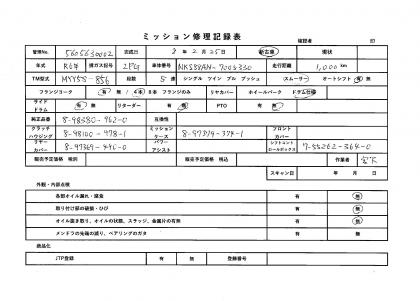 ミッション修理記録表
確認者 印
管理No. 5605630002 完成日 8年2月25日 中古車 現状
年式 R6年 排ガス記号 2PG 車体番号 NKS88AN-7003330 走行距離 1,000km
TM型式 MYY5S-856 段数 5速 シングル ツイン プル プッシュ (スムーサー オートシフト) 有 無
フランジヨーク 有 無 / 4本 8本 フランジのみ リヤカバー ホイールパーク ドラム仕様
サイドドラム 有 無 リターダー 有 無 PTO 有 無
純正品番 8-98380-962-0 互換性
クラッチハウジング 8-98100-978-1 ミッションケース 8-97319-374-1 フロントカバー
リヤーカバー 8-97369-440-0 パワーアシスト シフトユニットシールボックス 7-55262-364-0
販売予定価格 税別 販売予定価格 税込 作業者 宮下
スキャン日 年 月 日
外観・内部点検
各部オイル漏れ・腐食 有 無
取り付け部の破損・ひび 有 無
オイル抜き取り、オイルの状態、スラッジ、金属片の有無 有 無
メンドラの先端の減り、ベアリングのガタ 有 無
商品化
JTP登録 有 無 登録番号